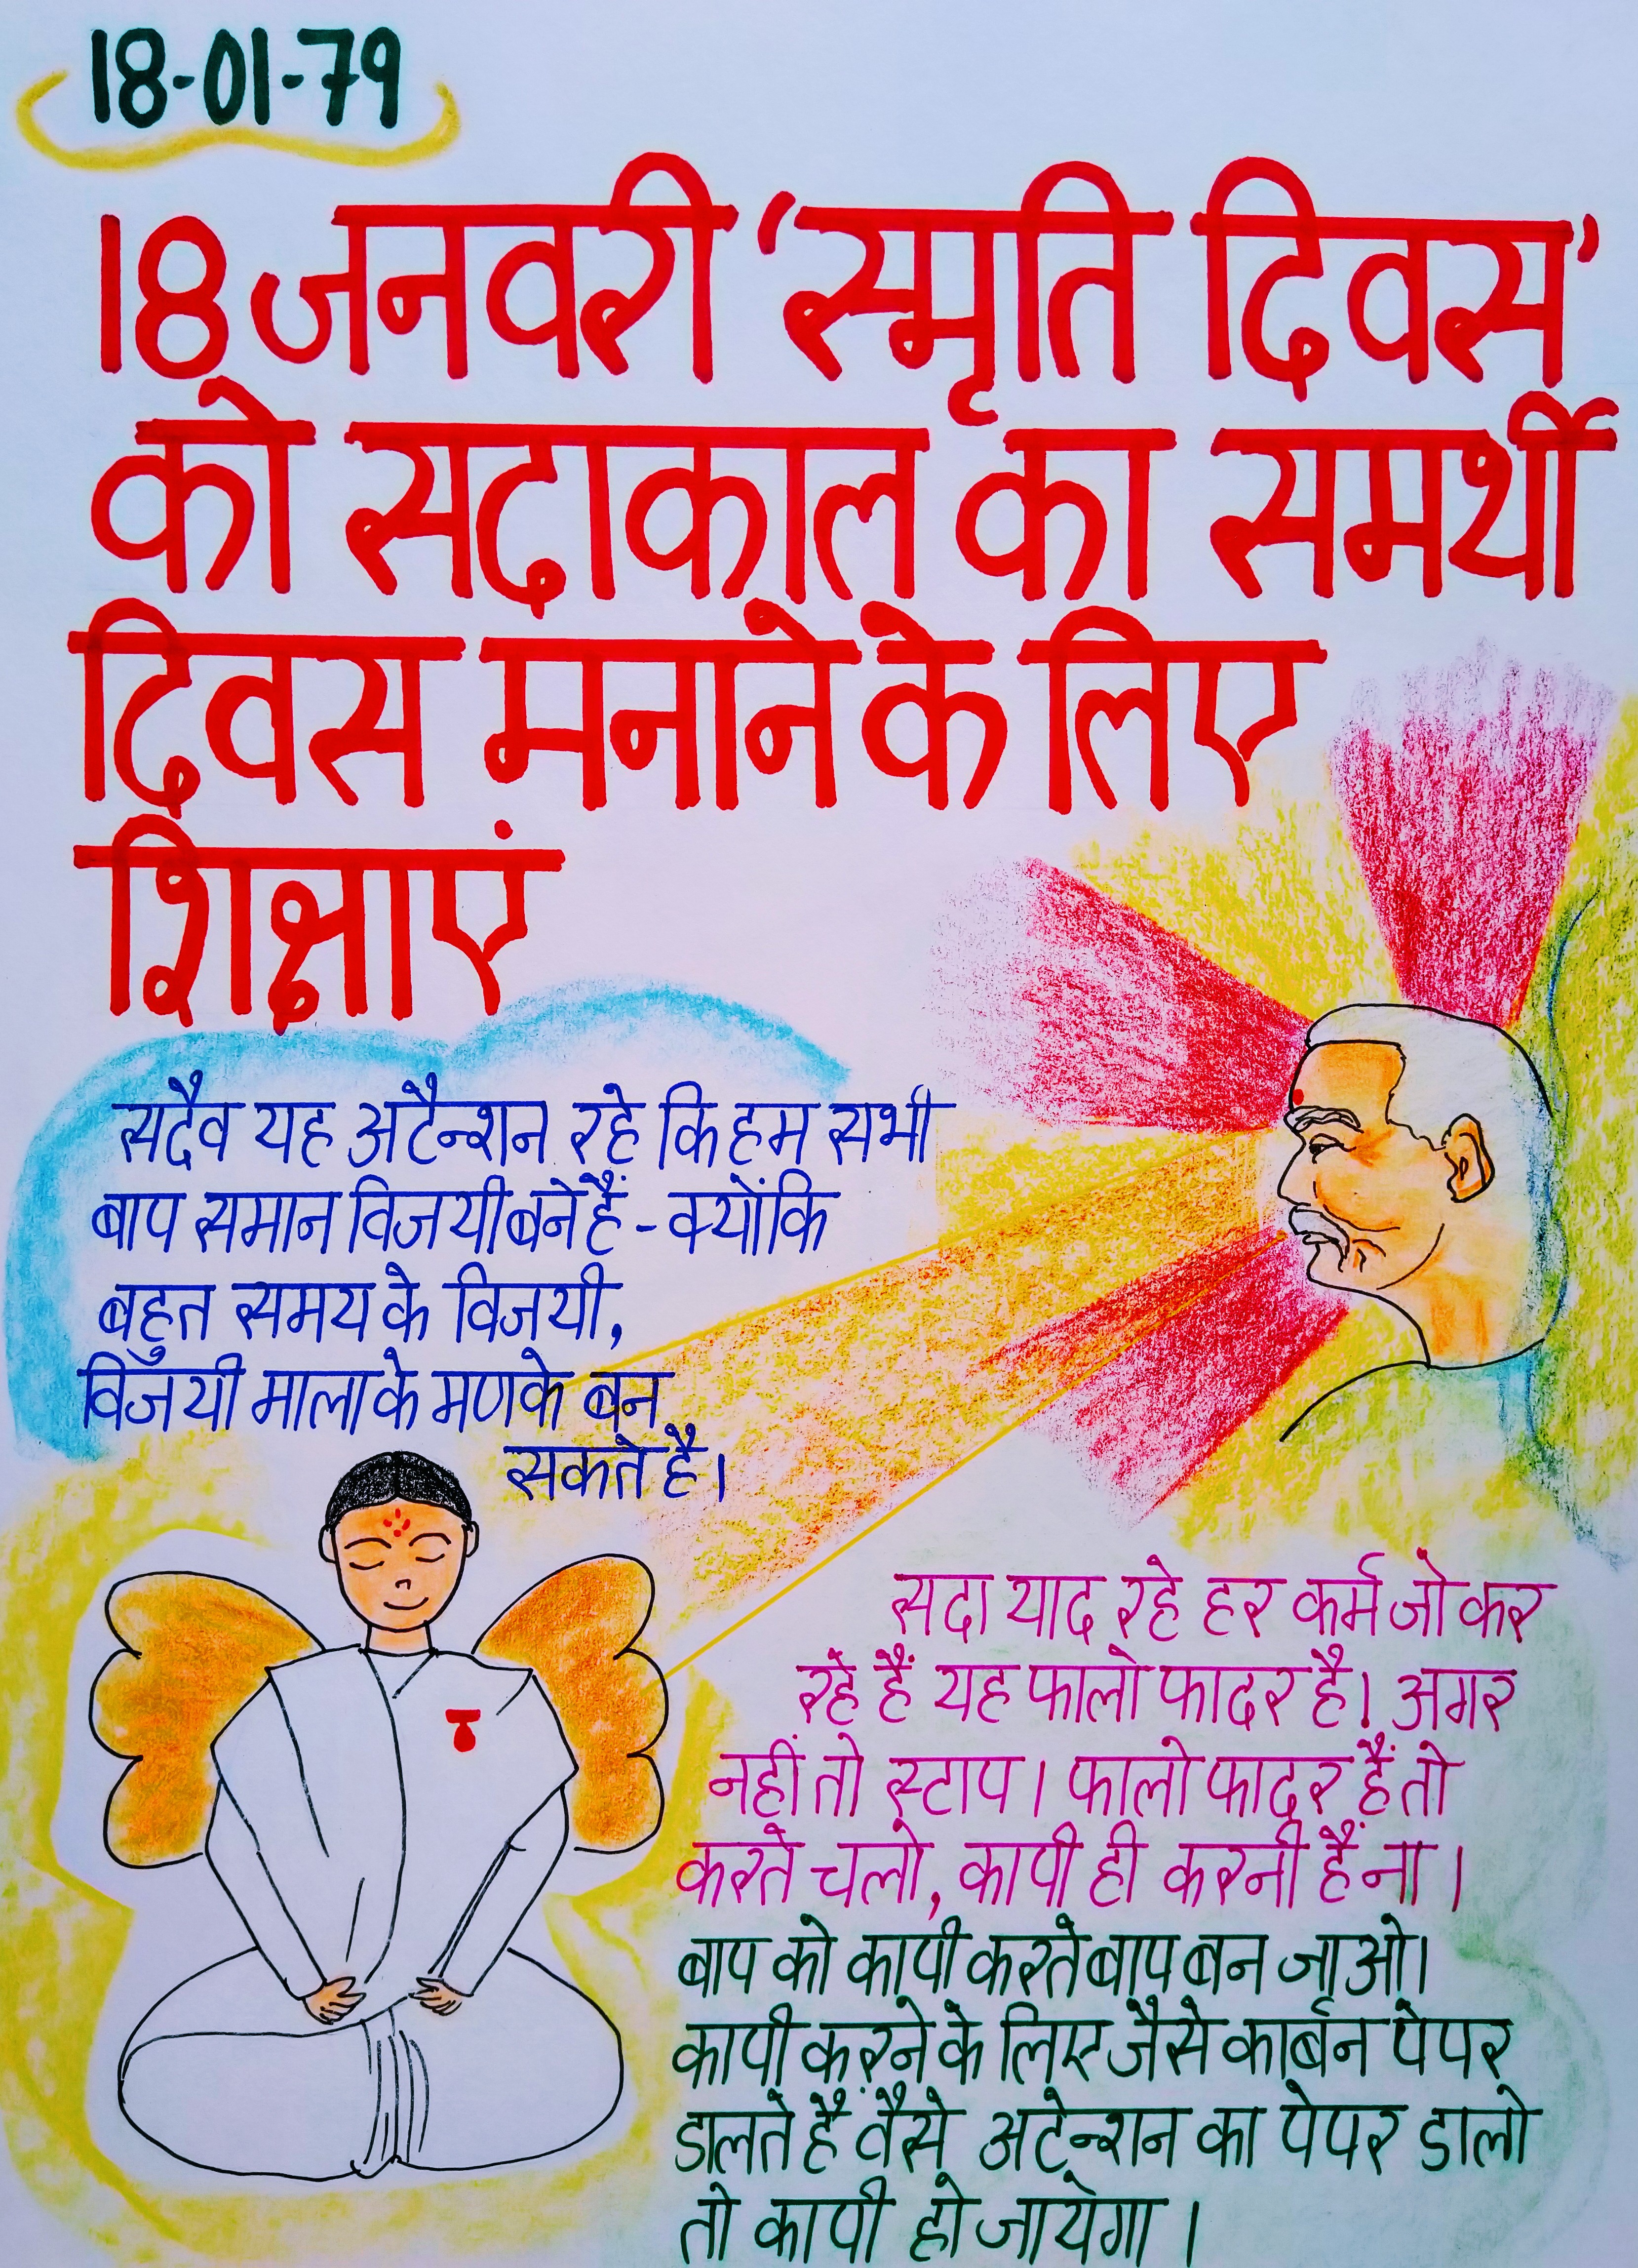 18-01-79
18 जनवरी ‘स्मृति दिवस’
को सदाकाल का समर्थी
दिवस मनाने के लिए
शिक्षाएं
सदैव यह अटैन्शन रहे कि हम सभी
बाप समान विजयी बने हैं - क्योंकि
बहुत समय के विजयी,
विजयी माला के मणके बन
सकते है।
सदा याद रहे हर कर्म जो कर
रहे हैं यह फालो फादर है। अगर
नहीं तो स्टाप। फालो फादर हैं तो
करते चलो, कापी ही करनी हैं ना।
बाप को कापी करते बाप बन जाओ।
कापी करने के लिए जैसे कार्बन पेपर
डालते हैं वैसे अटेन्शन का पेपर डालो
तो कापी हो जायेगा।